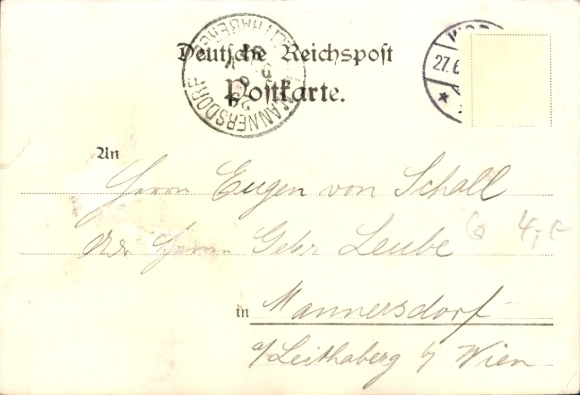 Deutsche Reichspost
Postkarte.
MANNERSDORF
27.6
An
Herrn Eugen von Schall
Adr. Herrn Gebr. Leube
4,-
in Mannersdorf
a/Leithaberg b/ Wien